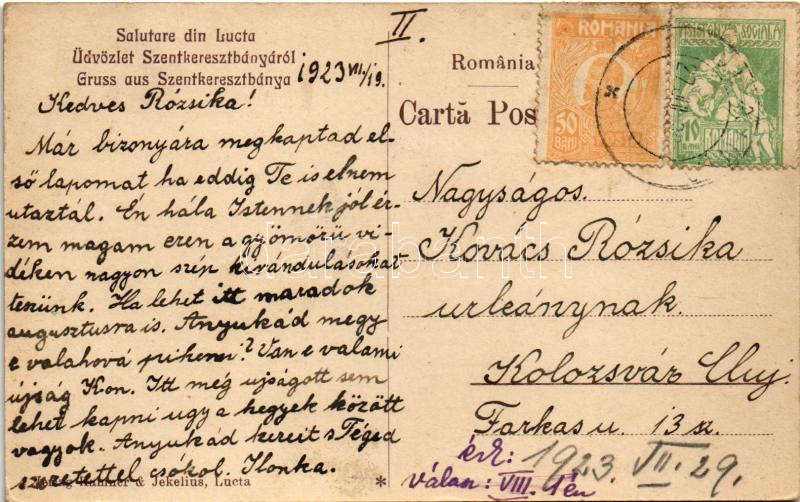 Salutare din Lucta
Üdvözlet Szentkeresztbányáról
Gruss aus Szentkeresztbánya
1923 VII/19.
II.
Kedves Rózsika!
Már bizonyára megkaptad el-
ső lapomat ha eddig Te is elnem
utaztál. Én hála Istennek jól ér-
zem magam ezen a gyömörü vi-
déken nagyon szép kirándulásokat
teszünk. Ha lehet itt maradok
augusztusra is. Anyukád megy
e valahová pihenni? Van e valami
újság Kon. Itt még ujságott sem
lehet kapni ugy a hegyek között
vagyok. Anyukád s Téged
szeretettel csókol. Ilonka.
& Jekelius, Lucta
*
România
Cartă Pos
ROMANIA
50
BANI
SOCIALA
10
BANI
Nagyságos.
Kovács Rózsika
urleánynak.
Kolozsvár Cluj.
Farkas u. 13 sz.
érk: 1923. VII. 29.
válasz: VIII. 1én
darabanth